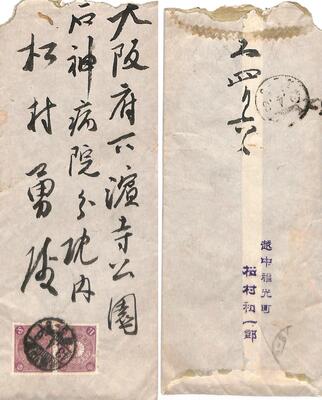 大阪府下濱寺公園
石神病院分院内
松村勇殿
五四月六日
越中福光町
松村和一郎